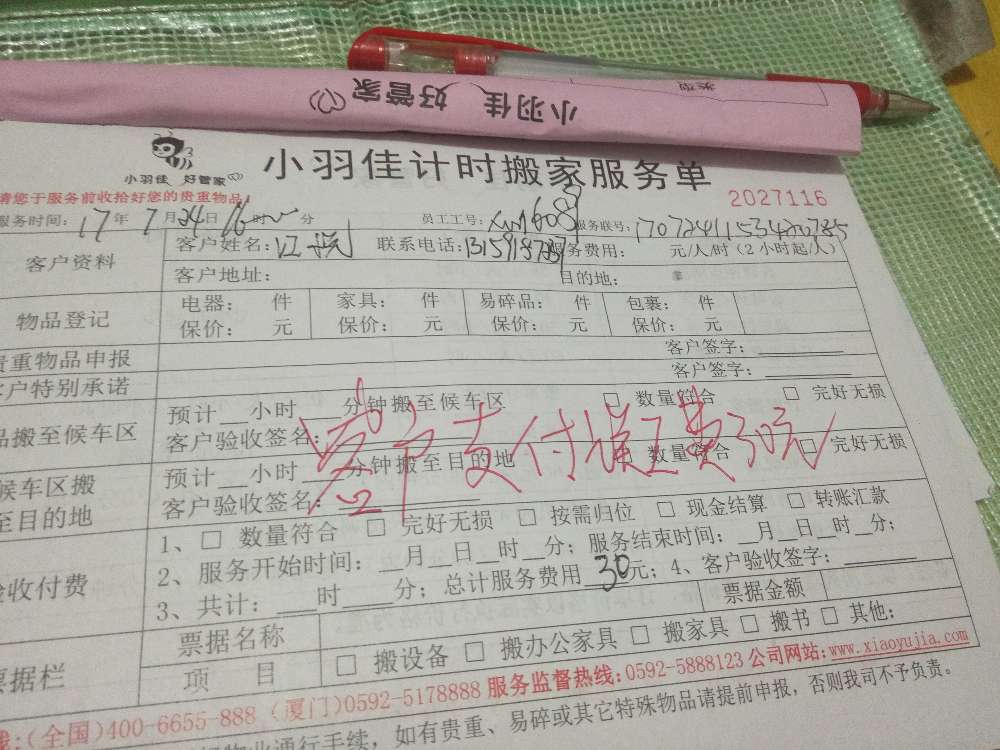 类型
小羽佳 好管家
小羽佳 好管家
小羽佳计时搬家服务单
请您于服务前收拾好您的贵重物品!
2027116
服务时间: 17 年 7 月 24 日 16 时 分 员工工号: 服务联号:
客户资料 客户姓名: 联系电话: 服务费用: 元/人/时(2小时起/人)
客户地址: 目的地:
物品登记 电器: 件 家具: 件 易碎品: 件 包裹: 件
保价: 元 保价: 元 保价: 元 保价: 元
贵重物品申报 客户签字:
客户特别承诺 客户签字:
品搬至候车区 预计 小时 分钟搬至候车区 □ 数量符合 □ 完好无损
客户验收签名:
支付 费30元
候车区搬 预计 小时 分钟搬至目的地 □ 数量符合 □ 完好无损
至目的地 客户验收签名:
验收付费 1、□ 数量符合 □ 完好无损 □ 按需归位 □ 现金结算 □ 转账汇款
2、服务开始时间: 月 日 时 分; 服务结束时间: 月 日 时 分;
3、共计: 时 分; 总计服务费用 30 元; 4、客户验收签字:
票据栏 票据名称 票据金额
项 目 □ 搬设备 □ 搬办公家具 □ 搬家具 □ 搬书 □ 其他:
线:(全国)400-6655-888 (厦门)0592-5178888 服务监督热线:0592-5888123 公司网站:www.xiaoyujia.com
物业通行手续, 如有贵重、易碎或其它特殊物品请提前申报, 否则我司不予负责。